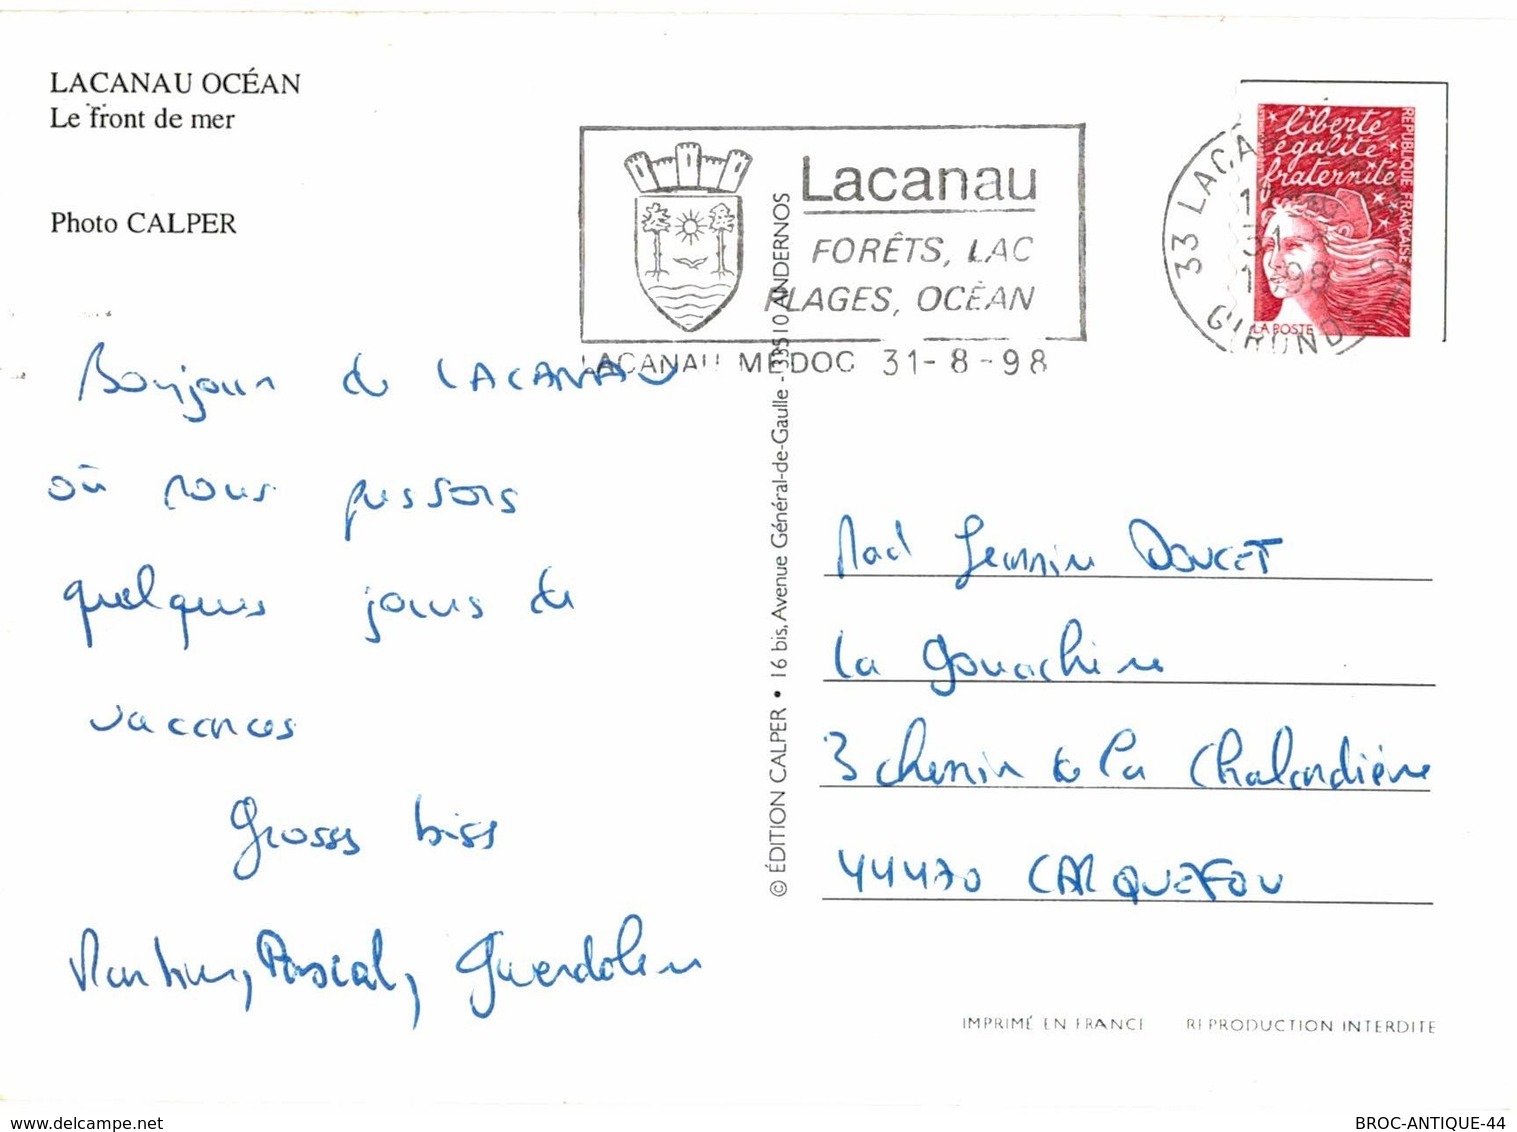 LACANAU OCÉAN
Le front de mer
Photo CALPER
Lacanau
FORÊTS, LAC
PLAGES, OCÉAN
LACANAU MEDOC 31-8-98
33 LACA
31-8
1998
GIRONDE
liberté
égalité
fraternité
RÉPUBLIQUE FRANÇAISE
LA POSTE
Bonjour de LACANAU
où nous passons
quelques jours de
vacances
Grosses bises
Martine, Pascal, Gwendoline
© ÉDITION CALPER • 16 bis, Avenue Général-de-Gaulle - 33510 ANDERNOS
Mad Jeannine DOUCET
la gouachère
3 chemin de la Chalandière
44470 CARQUEFOU
IMPRIMÉ EN FRANCE REPRODUCTION INTERDITE
www.delcampe.net
BROC-ANTIQUE-44